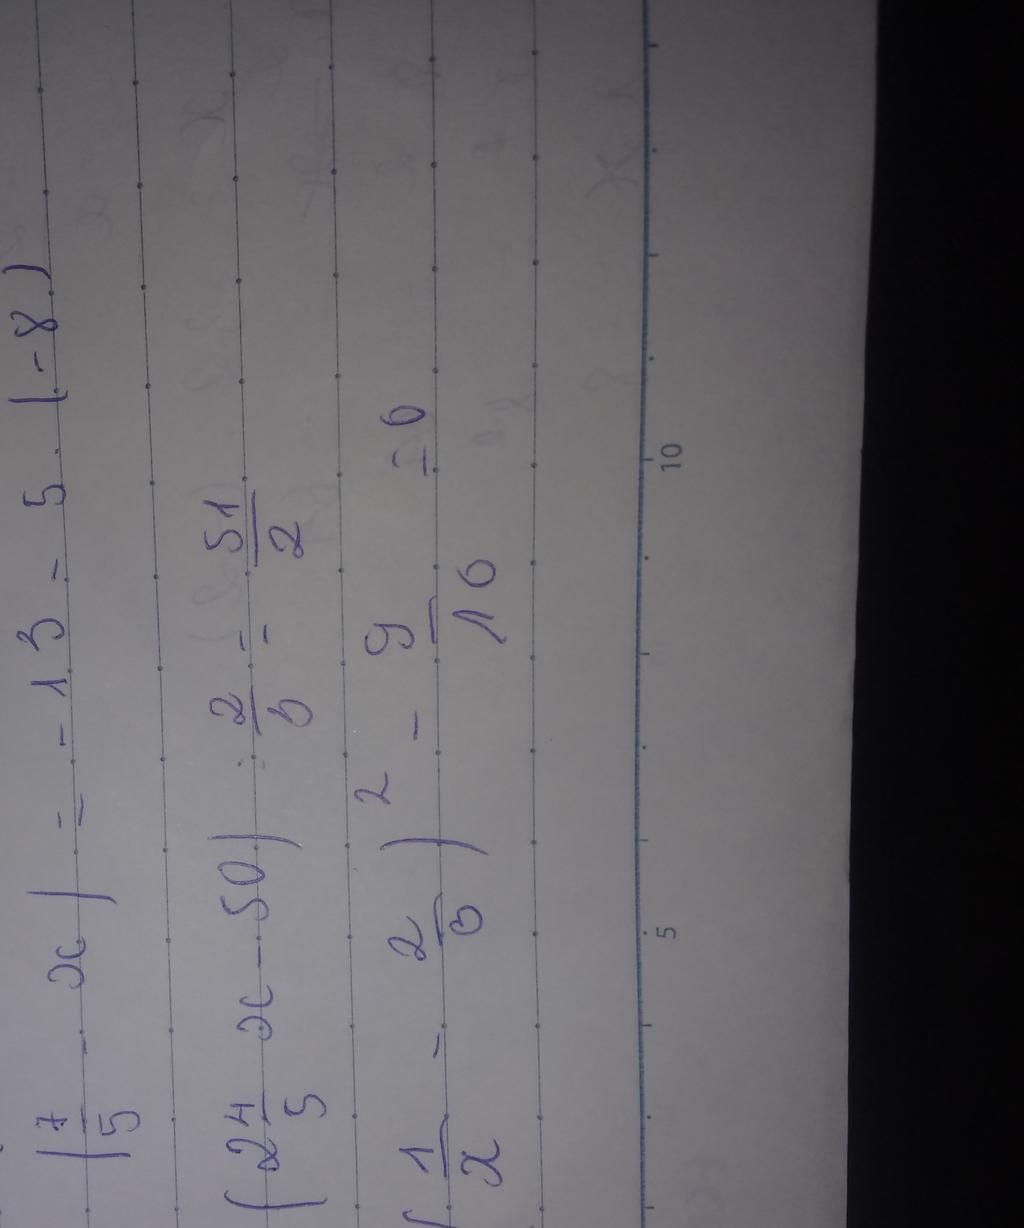 (7/5 - x) = -13 - 5 · (-8)
(2 4/5 x - 50) : 2/3 = 51/2
(1/x - 2/3)² - 9/16 = 0
5 10